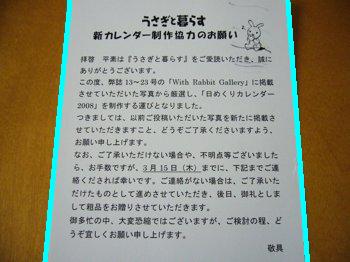 うさぎと暮らす
新カレンダー制作協力のお願い
拝啓 平素は『うさぎと暮らす』をご愛読いただき、誠に
ありがとうございます。
この度、弊誌 13～23 号の「With Rabbit Gallery」に掲載
させていただいた写真から厳選し、「日めくりカレンダー
2008」を制作する運びとなりました。
つきましては、以前ご投稿いただいた写真を新たに掲載さ
せていただきますこと、どうぞご了承くださいますよう、
お願い申し上げます。
なお、ご了承いただけない場合や、不明点等ございました
ら、お手数ですが、3 月 15 日（木）までに、下記までご連
絡くだされば幸いです。ご連絡がない場合は、ご了承いた
だけたものとして進めさせていただき、後日、御礼としま
して粗品をお贈りさせていただきます。
御多忙の中、大変恐縮ではございますが、ご検討の程、ど
うぞ宜しくお願い申し上げます。
敬具